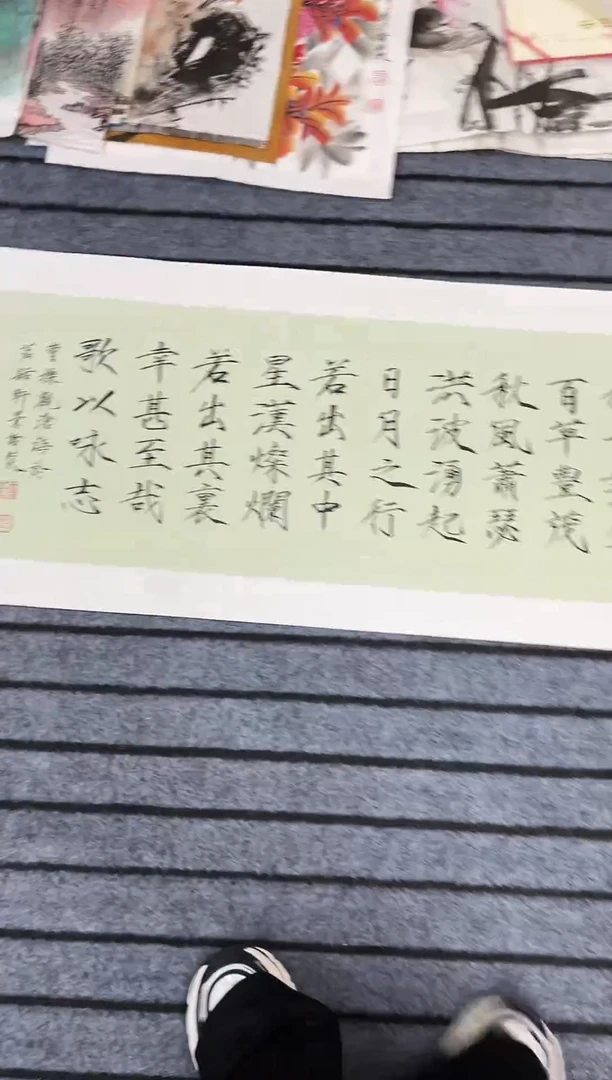 百草豐茂
秋風蕭瑟
洪波湧起
日月之行
若出其中
星漢燦爛
若出其裏
幸甚至哉
歌以咏志
曹操觀滄海